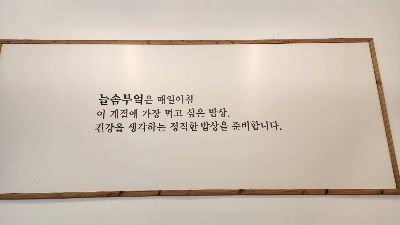 늘솜부엌은 매일아침
이 계절에 가장 먹고 싶은 밥상,
건강을 생각하는 정직한 밥상을 준비합니다.